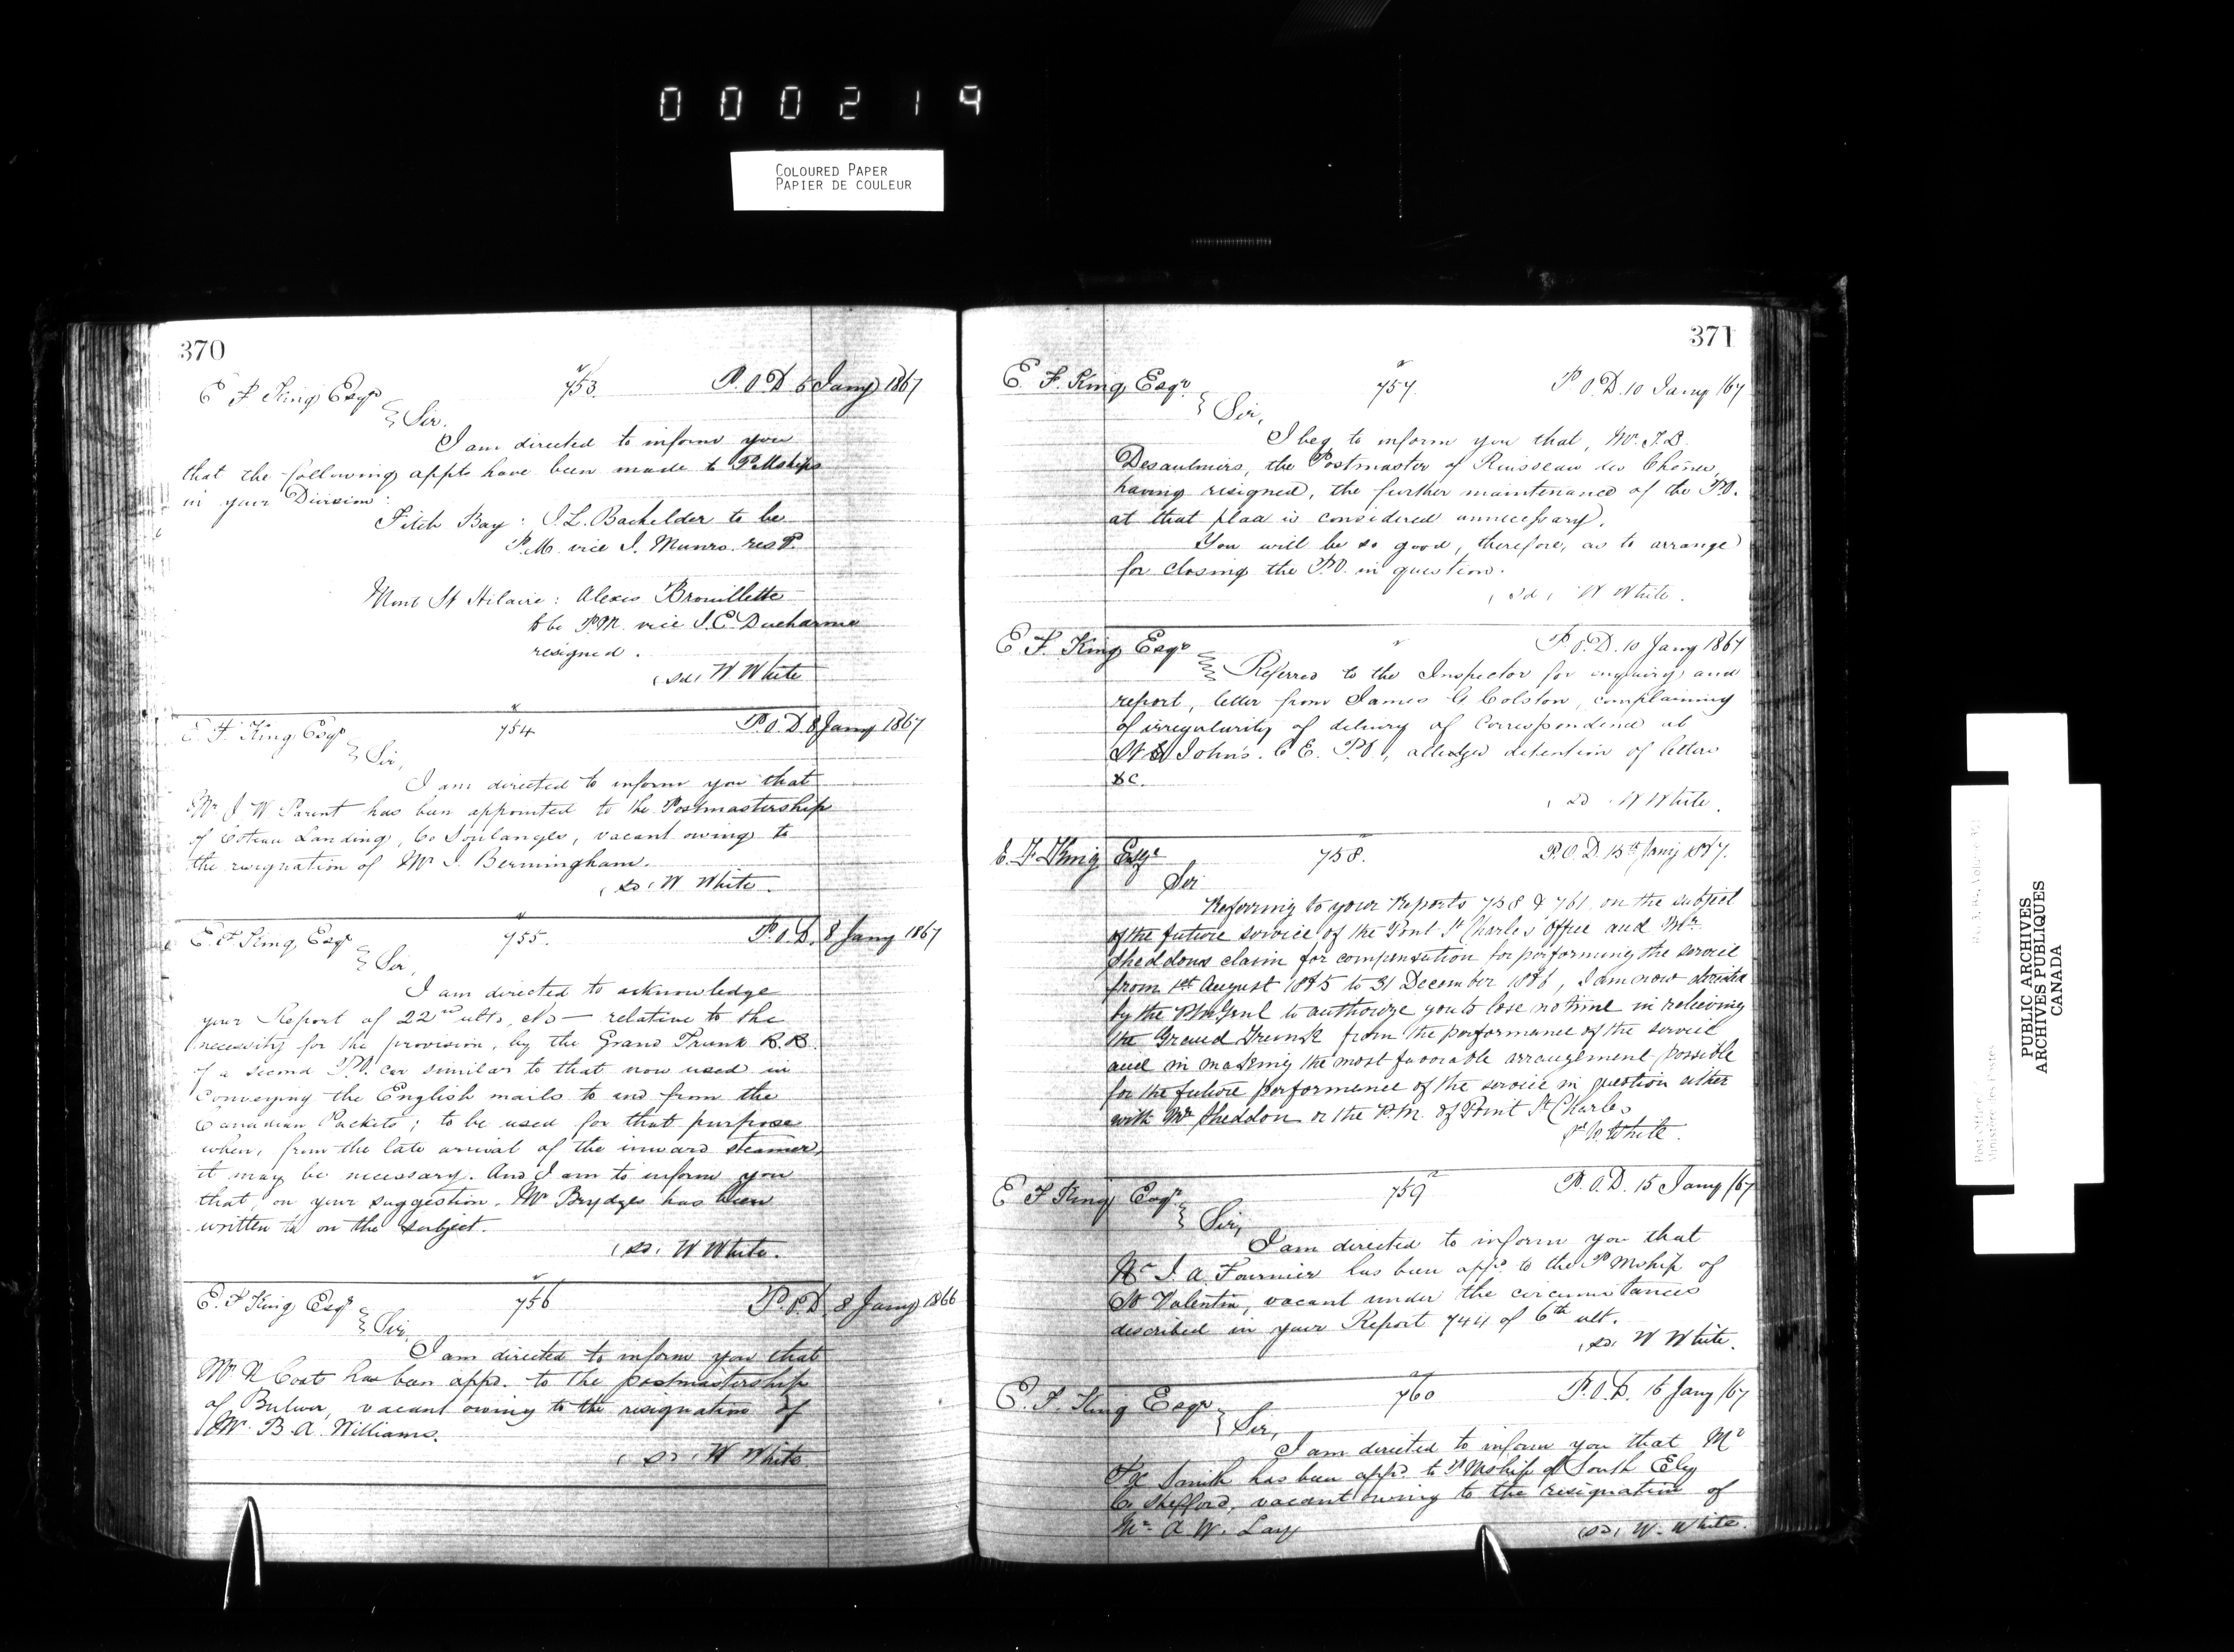 000219
COLOURED PAPER
PAPIER DE COULEUR
370
E F King Esqr 753 P.O.D 5 Jany 1867
Sir.
I am directed to inform you
that the following appts have been made to PMships
in your Division:
Fitch Bay: I.L. Bachelder to be
P.M. vice J. Munro. resd.
Mont St Hilaire: Alexis Brouillette
to be P.M. vice J.E. Ducharme
resigned.
(sd) W. White
E F King Esqr 754 P.O.D. 8 Jany 1867
Sir,
I am directed to inform you that
Mr J W Parent has been appointed to the Postmastership
of Coteau Landing, Co Soulanges, vacant owing to
the resignation of Mr J. Bermingham.
(sd) W White.
E. F King, Esqr 755. P.O.D. 8 Jany 1867
Sir,
I am directed to acknowledge
your Report of 22nd ulto, relative to the
necessity for the provision, by the Grand Trunk R.R.
of a second P.O. car similar to that now used in
conveying the English mails to and from the
Canadian Packets; to be used for that purpose
when, from the late arrival of the inward steamer,
it may be necessary. And I am to inform you
that, on your suggestion, Mr Brydges has been
written to on the subject.
(sd) W White.
E. F King Esqr 756 P.O.D. 8 Jany 1866
Sir,
I am directed to inform you that
Mr N Coats has been appd. to the postmastership
of Bulwer, vacant owing to the resignation of
Mr. B. A. Williams.
(sd) W White
371
E. F. King, Esqr. 757. P.O.D. 10 Jany /67
Sir,
I beg to inform you that, Mr.
Desaulniers, the Postmaster of Ruisseau des Chênes,
having resigned, the further maintenance of the P.O.
at that place is considered unnecessary.
You will be so good, therefore, as to arrange
for closing the P.O. in question.
(sd) W White.
E. F. King Esqr P.O.D. 10 Jany 1867
Referred to the Inspector for enquiry and
report, letter from James G Colston, complaining
of irregularity of delivery of Correspondence at
St John's. C E. P.O., alledged detention of letters
&c.
(sd) W White.
E. F King Esqr 758. P.O.D. 15th Jany 1867.
Sir
Referring to your Reports 758 & 761 on the subject
of the future service of the Point St Charles Office and Mr
Sheddons claim for compensation for performing the service
from 1st August 1865 to 31 December 1866, I am now directed
by the PMGenl to authorize you to lose no time in relieving
the Grand Trunk from the performance of the service
and in making the most favorable arrangement possible
for the future performance of the service in question either
with Mr Sheddon or the P.M. of Point St Charles
sd W. White.
E F King Esqr. 759 P.O.D. 15 Jany /67
Sir,
I am directed to inform you that
Mr J. A. Fournier has been appd. to the PMship of
St Valentin, vacant under the circumstances
described in your Report 744 of 6th ult.
(sd) W White.
E. F. King Esqr 760 P.O.D. 16 Jany /67
Sir,
I am directed to inform you that Mr
Smith has been appd. to PMship of South Ely
Co Shefford, vacant owing to the resignation of
Mr A W. Lay
(sd) W. White.
PUBLIC ARCHIVES
ARCHIVES PUBLIQUES
CANADA